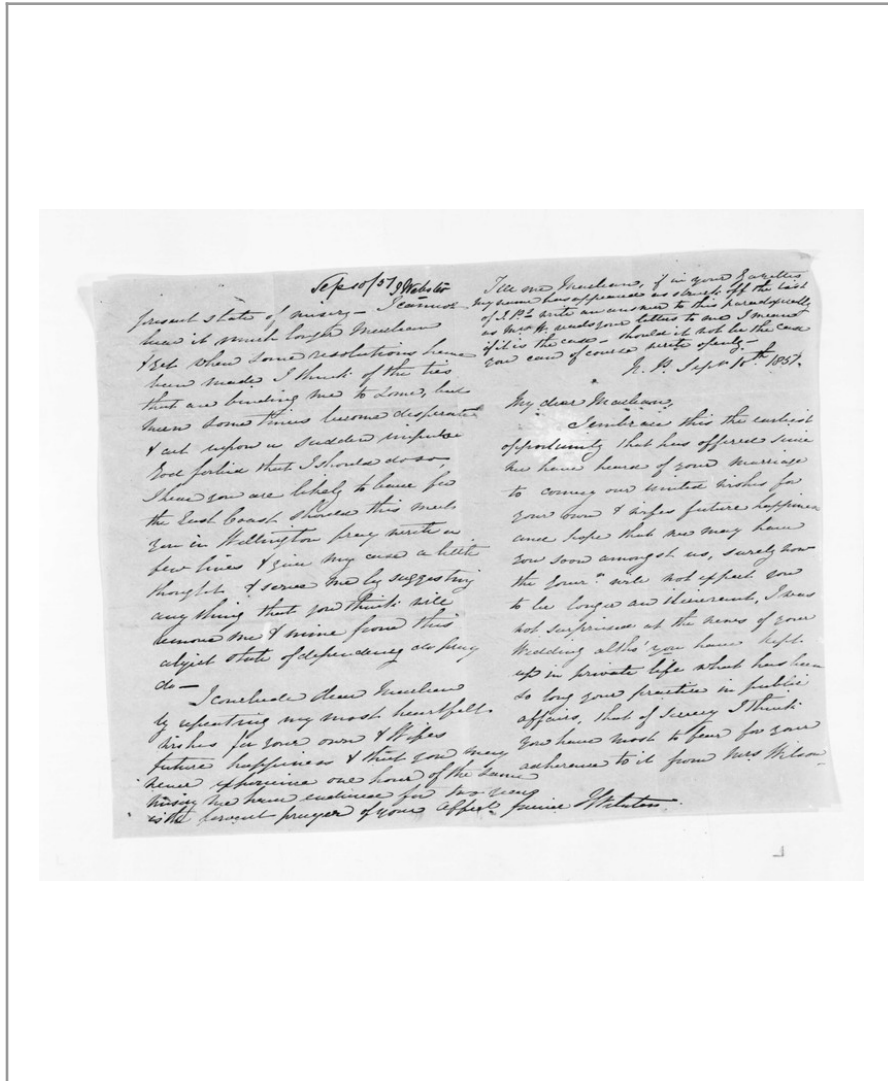 Sep 10/51 J Webster
present state of misery — I cannot
bear it much longer Maclean
& yet when some resolutions have
been made I think of the ties
that are binding me to home, but
men some times become desperate
& act upon a sudden impulse
God forbid that I should do so,
I hear you are likely to leave for
the East Coast should this meet
you in Wellington pray write a
few lines & give my case a little
thought & serve me by suggesting
any thing that you think will
remove me & mine from this
abject state of dependency do pray
do —
I conclude dear Maclean
by repeating my most heartfelt
wishes for your own & Wifes
future happiness & that you may
never experience one hour of the same
misery we have endured for two years
is the fervent prayer of your affect friend J Webster
Tell me Maclean, if in your Gazettes
my name has appeared as struck off the list
of J.P.s write an answer to this paradoxically
as Mrs W. reads your letters to me I mean
if it is the case — should it not be the case
you can of course write openly —
N. P. Sepr 10th 1851.
My dear Maclean,
I embrace this the earliest
opportunity that has offered since
we have heard of your marriage
to convey our united wishes for
your own & wifes future happiness
and hope that we may have
you soon amongst us, surely now
the Govr. will not expect you
to be longer an itinerant, I was
not surprised at the news of your
Wedding altho' you have kept
up in private life what has been
so long your practice in public
affairs, that of secrecy I think
you have most to fear for your
adherence to it from Mrs Wilson